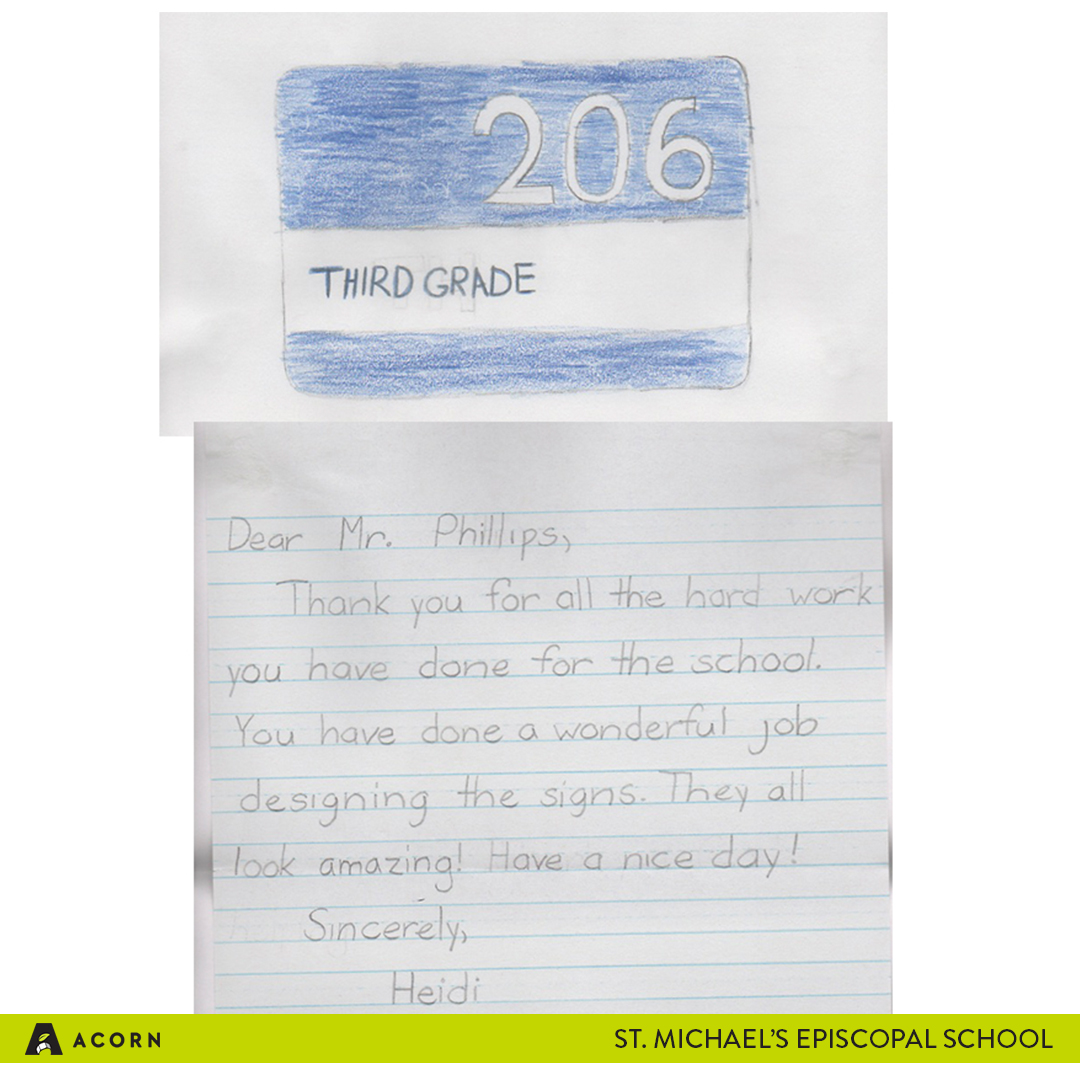 206
THIRD GRADE
Dear Mr. Phillips,
Thank you for all the hard work
you have done for the school.
You have done a wonderful job
designing the signs. They all
look amazing! Have a nice day!
Sincerely,
Heidi
ACORN
ST. MICHAEL'S EPISCOPAL SCHOOL